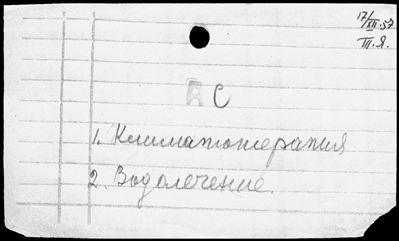 17/XII.57
III.Я.
С
1. Климатотерапия
2. Водолечение.